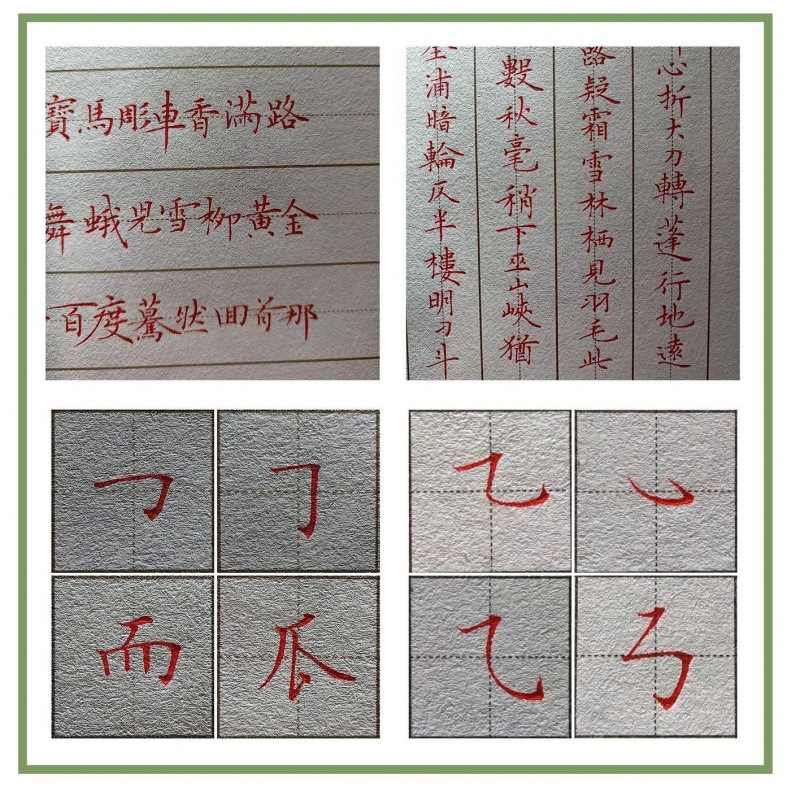 寶馬彫車香滿路
舞蛾兒雪柳黃金
百度驀然回首那
心折大刀轉蓬行地遠
路疑霜雪林栖見羽毛此
數秋毫稍下巫山峽猶
全浦暗輪仄半樓明刁斗
㇆𠃌
而瓜
乙㇃
乙㇉